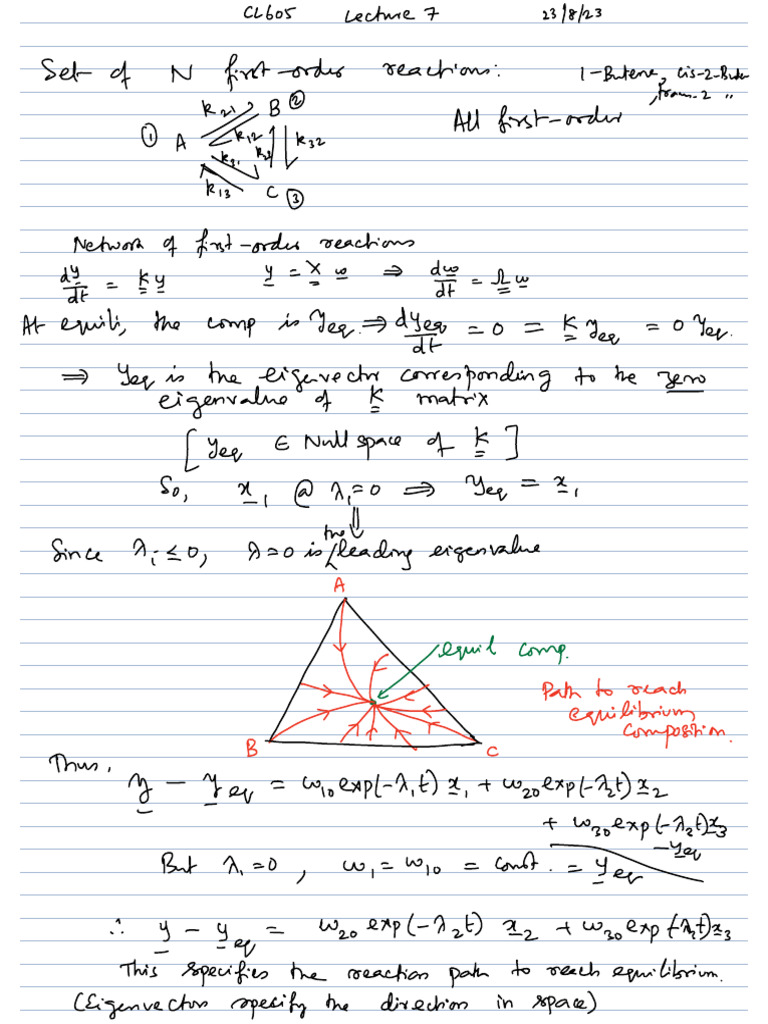 CL605 Lecture 7 23/8/23
Set of N first-order reactions: 1-Butene, cis-2-Buten
, tran-2 "
All first-order
k21 B ②
① A k12 k32
k31 k23
k13 C ③
Network of first-order reactions
dy/dt = K y y = X w ⇒ dw/dt = Ω w
At equili, the comp is yeq ⇒ dyeq/dt = 0 = K yeq = 0 yeq.
⇒ yeq is the eigenvector corresponding to the zero
eigenvalue of K matrix
[yeq ∈ Null space of K]
So, x1 @ λ1=0 ⇒ yeq = x1
⇓
Since λi ≤ 0, λ=0 is the leading eigenvalue
A
equil comp.
Path to reach
equilibrium
composition.
B C
Thus,
y - yeq = w10 exp(-λ1t) x1 + w20 exp(-λ2t) x2
+ w30 exp(-λ2t) x3
- yeq
But λ1=0, w1 = w10 = const. = yeq
∴ y - yeq = w20 exp(-λ2t) x2 + w30 exp(-λ3t) x3
This specifies the reaction path to reach equilibrium.
(Eigenvectors specify the direction in space)